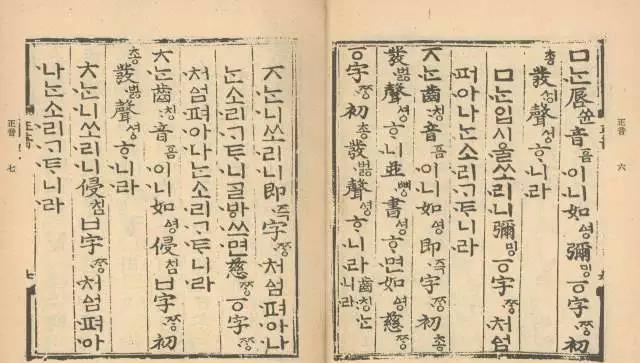 正音 六
ㅁᄂᆞᆫ脣쓘音흠이니如ᅀᅧᆼ彌밍ㆆ字ᄍᆞᆼ初
총發벓聲셩ᄒᆞ니라
ㅁᄂᆞᆫ입시울쏘리니彌밍ㆆ字ᄍᆞᆼ처ᅀᅥᆷ
펴아나ᄂᆞᆫ소리ᄀᆞᄐᆞ니라
ㅈᄂᆞᆫ齒칭音흠이니如ᅀᅧᆼ即즉字ᄍᆞᆼ初총
發벓聲셩ᄒᆞ니並뼝書셩ᄒᆞ면如ᅀᅧᆼ慈ᄍᆞᆼ
ㆆ字ᄍᆞᆼ初총發벓聲셩ᄒᆞ니라齒칭ᄂᆞᆫ니라
ㅈᄂᆞᆫ니쏘리니即즉字ᄍᆞᆼ처ᅀᅥᆷ펴아나
ᄂᆞᆫ소리ᄀᆞᄐᆞ니ᄀᆞᆯᄫᅡ쓰면慈ᄍᆞᆼㆆ字ᄍᆞᆼ
처ᅀᅥᆷ펴아나ᄂᆞᆫ소리ᄀᆞᄐᆞ니라
ㅊᄂᆞᆫ齒칭音흠이니如ᅀᅧᆼ侵침ㅂ字ᄍᆞᆼ初
총發벓聲셩ᄒᆞ니라
ㅊᄂᆞᆫ니쏘리니侵침ㅂ字ᄍᆞᆼ처ᅀᅥᆷ펴아
나ᄂᆞᆫ소리ᄀᆞᄐᆞ니라
正音 七